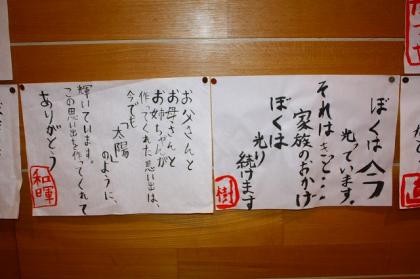 今
ぼくは
光っています。
それはきっと・・・
家族のおかげ
ぼくは
光り
続けます
樹
お父さんと
お母さんと
お姉ちゃんが
作ってくれた思い出は、
今でも
「太陽」
のように、
輝いています。
この思い出を作ってくれて
ありがとう
和暉